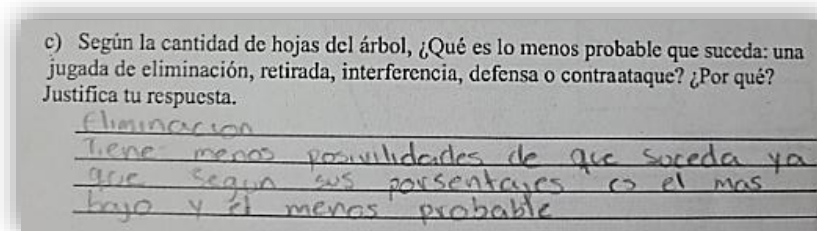 c) Según la cantidad de hojas del árbol, ¿Qué es lo menos probable que suceda: una
jugada de eliminación, retirada, interferencia, defensa o contraataque? ¿Por qué?
Justifica tu respuesta.
Eliminacion
Tiene menos posivilidades de que soceda ya
que segun sus porsentajes es el mas
bajo y el menos probable